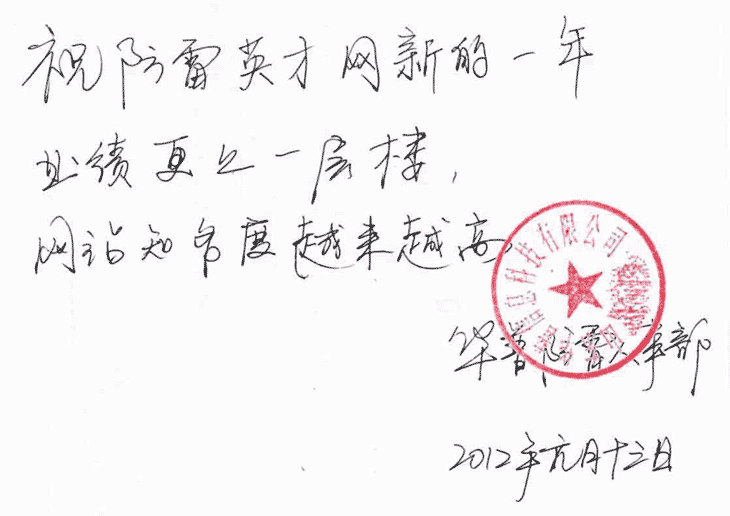 祝防雷英才网新的一年
业绩更上一层楼，
网站知名度越来越高。
信息科技有限公司
华普防雷人事部
2012年元月十三日